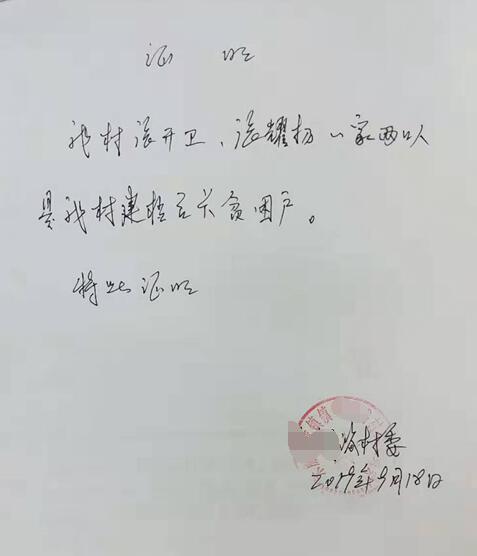 证 明
我村张开卫、张耀扬一家两口人
是我村建档立卡贫困户。
特此证明
村委
2019年9月18日